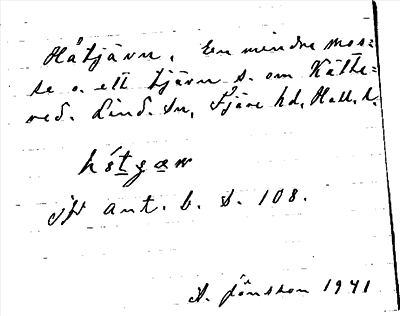 Håtjärn. En mindre mos-
se o. ett tjärn s. om Kätte-
red. Lind. sn, Fjäre hd, Hall. l.
ant. b. s. 108.
A. Jönsson 1941